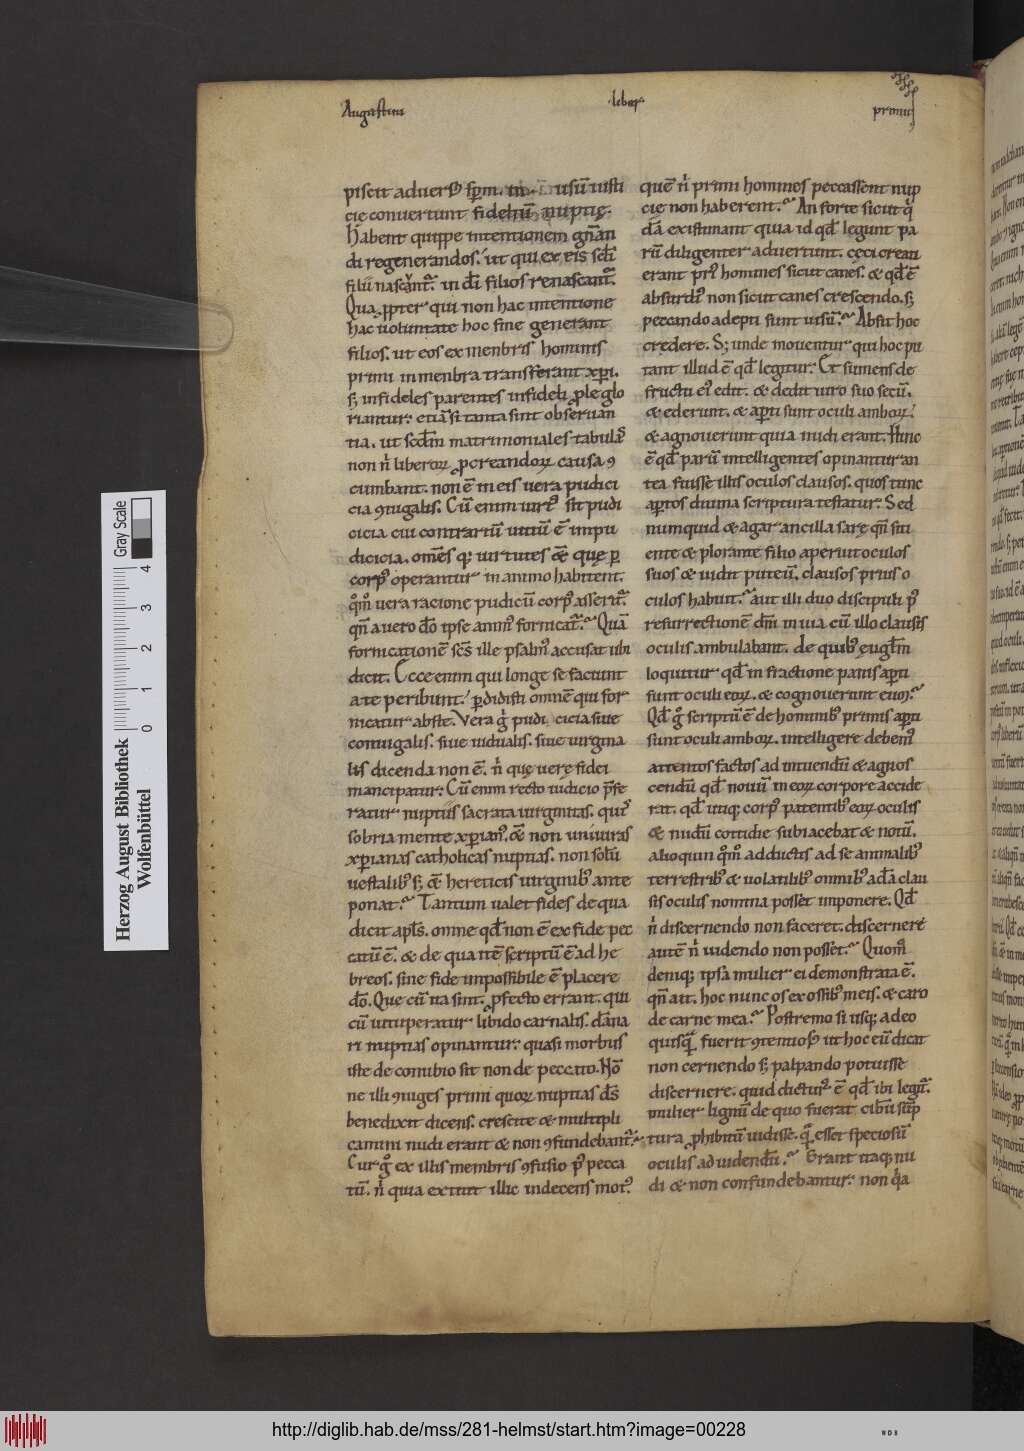 Augustini
·liber·
primus
piscit aduersꝰ sp̄m. in usū iusti
cie conuertunt fideliū nuptię.
Habent quippe intentionem gn̄an
di regenerandos. ut qui ex eis sc̄li
filii nascunt᷑. in dī filios renascant᷑.
Qua ꝓpter qui non hac intentione
hac uoluntate hoc fine generant
filios. ut eos ex menbris hominis
primi in menbra transferant xp̄i.
s; infideles parentes infideli ꝓle glo
riantur. etiā si tanta sint obseruan
tia. ut scdm̄ matrimoniales tabulas
non nͥ liberoꝝ ꝓcreandoꝝ causa ꝯ
cumbant. non ē in eis uera pudici
cia ꝯiugalis. Cū enim uirtꝰ sit pudi
cicia cui contrariū uitiū ē impu
dicicia. om̄es q; uirtutes & quę ꝑ
corpꝰ operantur in animo habitent.
qͦmͦ uera racione pudicū corpꝰ asserit᷑.
qn̄ a uero dō ipse animꝰ fornicat᷑. Quā
fornicationē sc̄s ille psalmꝰ accusat ubi
dicit. Ecce enim qui longe se faciunt
a te peribunt. ꝑdidisti omnē qui for
nicatur abs te. Vera gͥ pudi cicia siue
coniugalis. siue uidualis. siue uirgina
lis dicenda non ē. nͥ quę uerę fidei
mancipatur. Cū enim recto iudicio p̄fe
ratur nuptiis sacrata uirginitas. quis
sobria mente xp̄ianꝰ. & non uniuiras
xp̄ianas catholicas nuptas. non solū
uestalibꝰ s; & hereticis uirginibꝰ ante
ponat. Tantum ualet fides de qua
dicit apl̄s. omne qd̄ non ē ex fide pec
catū ē. & de qua itē scriptū ē ad he
breos. sine fide impossibile ē placere
dō. Que cū ita sint. ꝓfecto errant. qui
cū uituperatur libido carnalis. dāna
ri nuptias opinantur. quasi morbus
iste de conubio sit non de peccato. Nō
ne illi ꝯiuges primi quoꝝ nuptias ds̄
benedixit dicens. crescite & multipli
camini nudi erant & non ꝯfundebant᷑.
Cur gͦ ex illis membris ꝯfusio pꝰ pecca
tū. nͥ quia extitit illic indecens motꝰ.
quē nͥ primi homines peccassent nup
cie non haberent. An forte sicut qͥ
dā existimant quia id qd̄ legunt pa
rū diligenter aduertunt. cęci creati
erant prͥ homines sicut canes. & qd̄ ē
absurdiꝰ non sicut canes crescendo. s;
peccando adepti sunt uisū. Absit hoc
credere. S; unde mouentur qui hoc pu
tant illud ē qd̄ legitur. Et sumens de
fructu eiꝰ edit. & dedit uiro suo secū.
& ederunt. & aꝑti sunt oculi amboꝝ.
& agnouerunt quia nudi erant. Hinc
ē qd̄ parū intelligentes opinantur an
tea fuisse illis oculos clausos. quos tunc
aꝑtos diuina scriptura testatur. Sed
numquid & agar ancilla sarę qn̄ siti
ente & plorante filio aperuit oculos
suos & uidit puteū. clausos prius o
culos habuit. aut illi duo discipuli pꝰ
resurrectionē dn̄i in uia cū illo clausis
oculis ambulabant. de quibꝰ euglm̄
loquitur qd̄ in fractione panis aꝑti
sunt oculi eoꝝ. & cognouerunt eum.
Qd̄ gͦ scriptū ē de hominibꝰ primis aꝑti
sunt oculi amboꝝ. intelligere debemꝰ
attentos factos ad intuendū & agnos
cendū qd̄ nouū in eoꝝ corpore accide
rat. qd̄ utiq; corpꝰ patentibꝰ eoꝝ oculis
& nudū cottidie subiacebat & notū.
alioquin qͦmͦ adductis ad se animalibꝰ
terrestribꝰ & uolatilibꝰ omnibꝰ adā clau
sis oculis nomina posset imponere. Qd̄
nͥ discernendo non faceret. discernere
autē nͥ uidendo non posset. Quomͦ
deniq; ipsa mulier ei demonstrata ē.
qn̄ ait. hoc nunc os ex ossibꝰ meis. & caro
de carne mea. Postremo si usq; adeo
quisquā fuerit ꝯtentiosꝰ ut hoc eū dicat
non cernendo s; palpando potuisse
discernere. quid dicturꝰ ē qd̄ ibi legit᷑.
mulier lignū de quo fuerat cibū sūp
tura ꝓhibitū uidisse. quā esset speciosū
oculis ad uidendū. Erant itaq; nu
di & non confundebantur. non qͥa
Herzog August Bibliothek
Wolfenbüttel
0 1 2 3 4
Gray Scale
http://diglib.hab.de/mss/281-helmst/start.htm?image=00228
WDB